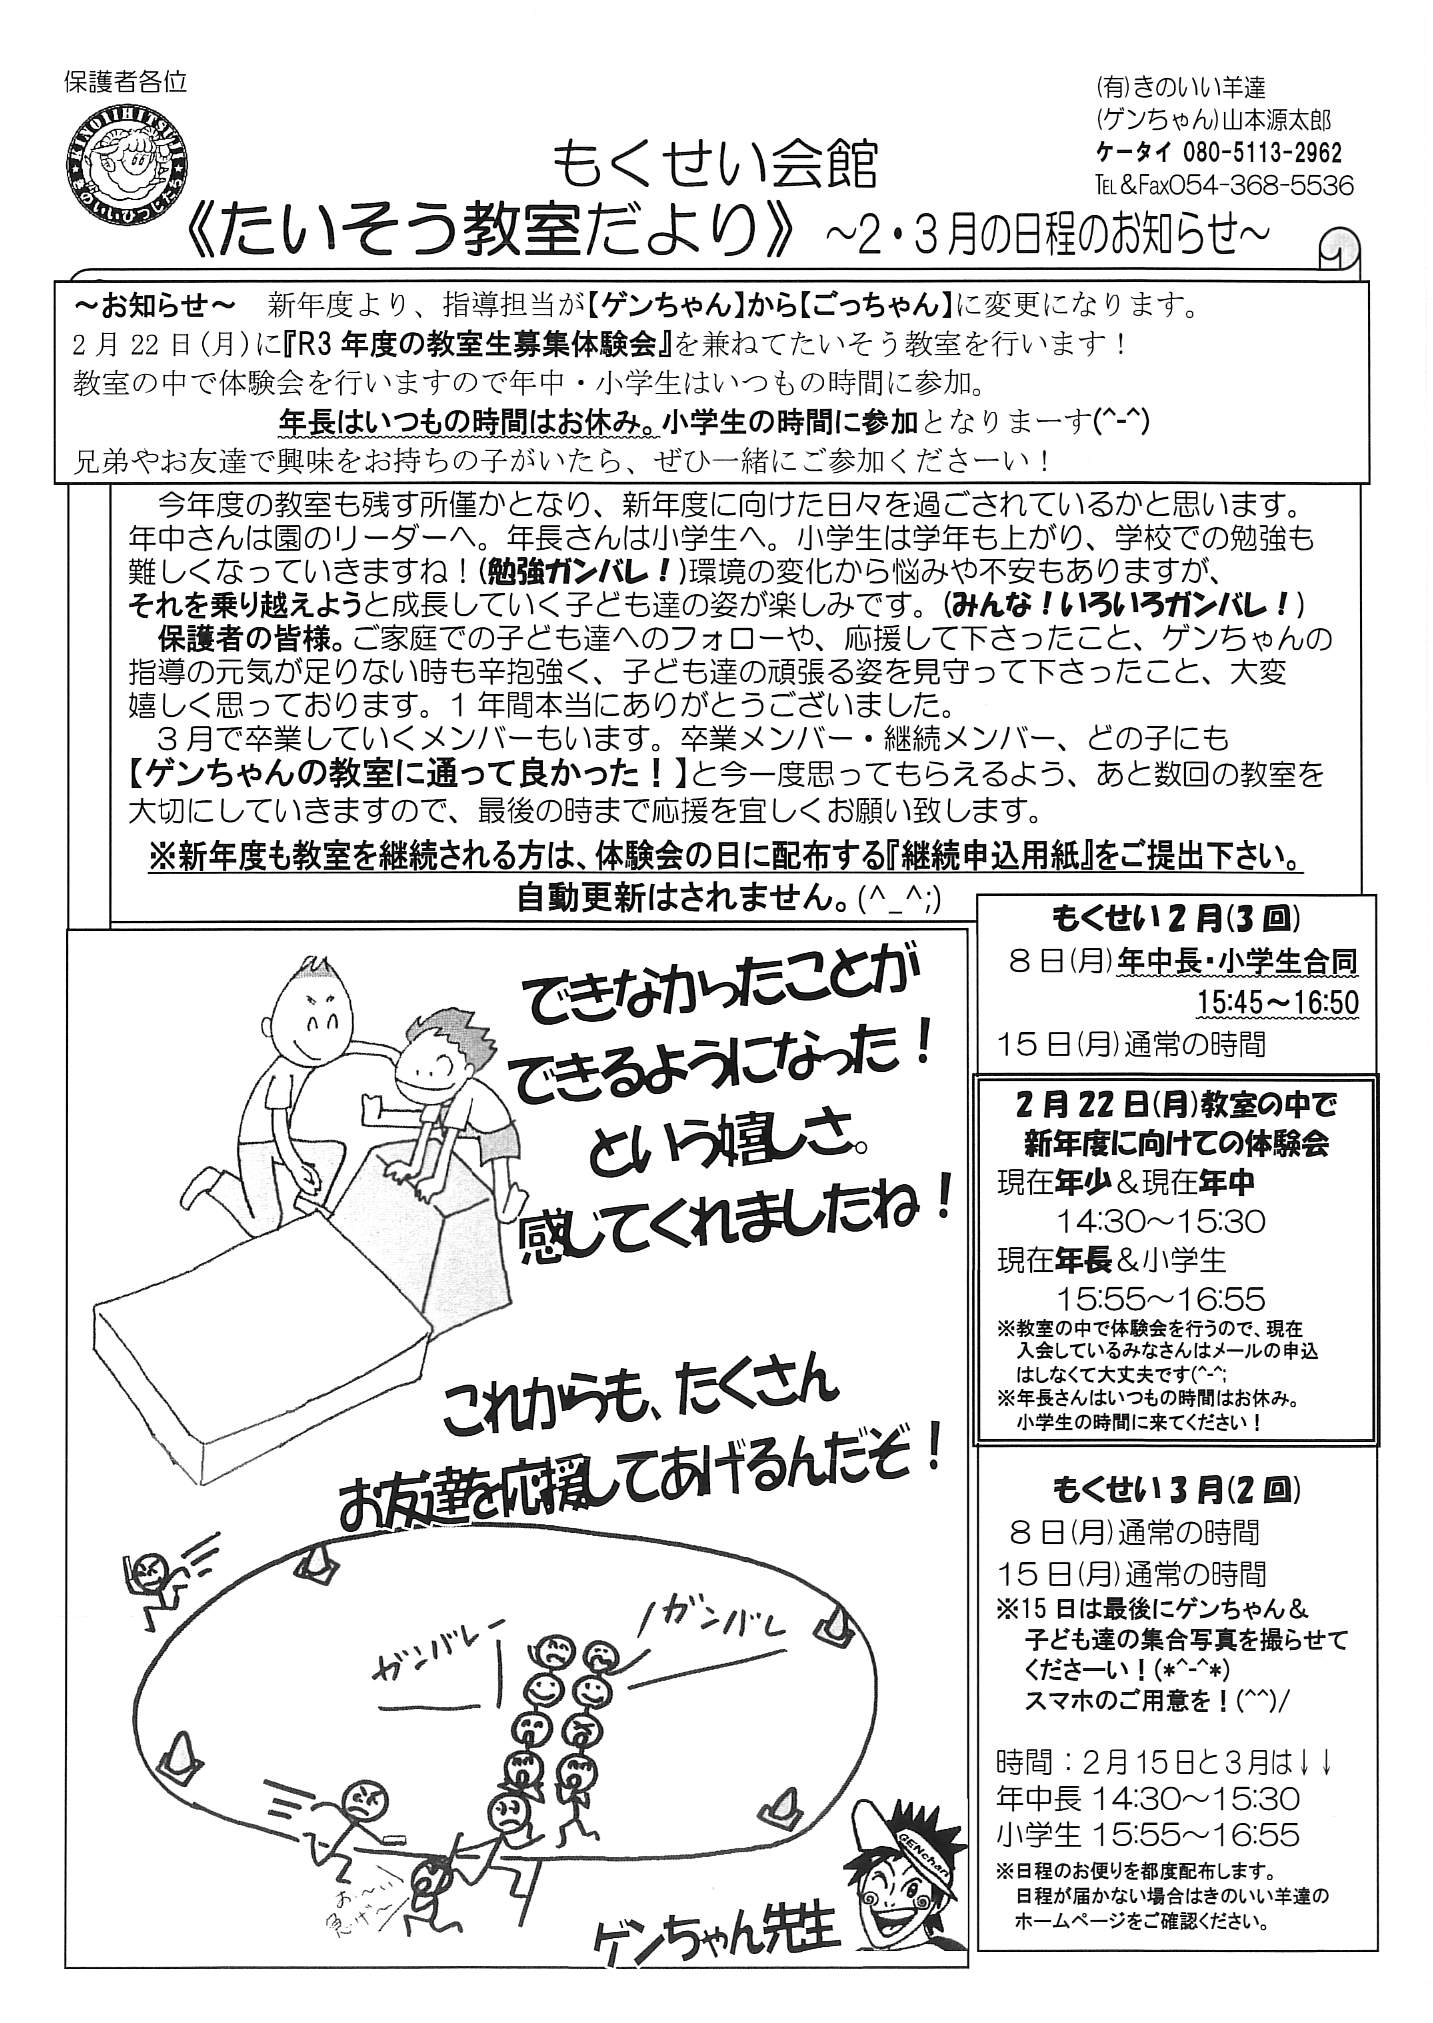 保護者各位
(有)きのいい羊達
(ゲンちゃん)山本源太郎
ケータイ 080-5113-2962
TEL＆Fax054-368-5536
KINOIIHITSUJI
★きのいいひつじたち★
もくせい会館
《たいそう教室だより》 ～2・3月の日程のお知らせ～
～お知らせ～　新年度より、指導担当が【ゲンちゃん】から【ごっちゃん】に変更になります。
2月22日(月)に『R3年度の教室生募集体験会』を兼ねてたいそう教室を行います！
教室の中で体験会を行いますので年中・小学生はいつもの時間に参加。
年長はいつもの時間はお休み。小学生の時間に参加となりまーす(^-^)
兄弟やお友達で興味をお持ちの子がいたら、ぜひ一緒にご参加くださーい！
今年度の教室も残す所僅かとなり、新年度に向けた日々を過ごされているかと思います。
年中さんは園のリーダーへ。年長さんは小学生へ。小学生は学年も上がり、学校での勉強も
難しくなっていきますね！(勉強ガンバレ！)環境の変化から悩みや不安もありますが、
それを乗り越えようと成長していく子ども達の姿が楽しみです。(みんな！いろいろガンバレ！)
保護者の皆様。ご家庭での子ども達へのフォローや、応援して下さったこと、ゲンちゃんの
指導の元気が足りない時も辛抱強く、子ども達の頑張る姿を見守って下さったこと、大変
嬉しく思っております。1年間本当にありがとうございました。
3月で卒業していくメンバーもいます。卒業メンバー・継続メンバー、どの子にも
【ゲンちゃんの教室に通って良かった！】と今一度思ってもらえるよう、あと数回の教室を
大切にしていきますので、最後の時まで応援を宜しくお願い致します。
※新年度も教室を継続される方は、体験会の日に配布する『継続申込用紙』をご提出下さい。
自動更新はされません。(^_^;)
できなかったことが
できるようになった！
という嬉しさ。
感じてくれましたね！
これからも、たくさん
お友達を応援してあげるんだぞ！
ガンバレー
ガンバレ
お～い
急げ～
GENchan
ゲンちゃん先生
もくせい2月(3回)
8日(月)年中長・小学生合同
15:45～16:50
15日(月)通常の時間
2月22日(月)教室の中で
新年度に向けての体験会
現在年少＆現在年中
14:30～15:30
現在年長＆小学生
15:55～16:55
※教室の中で体験会を行うので、現在
入会しているみなさんはメールの申込
はしなくて大丈夫です(^-^;
※年長さんはいつもの時間はお休み。
小学生の時間に来てください！
もくせい3月(2回)
8日(月)通常の時間
15日(月)通常の時間
※15日は最後にゲンちゃん＆
子ども達の集合写真を撮らせて
くださーい！(*^-^*)
スマホのご用意を！(^^)/
時間：2月15日と3月は↓↓
年中長 14:30～15:30
小学生 15:55～16:55
※日程のお便りを都度配布します。
日程が届かない場合はきのいい羊達の
ホームページをご確認ください。